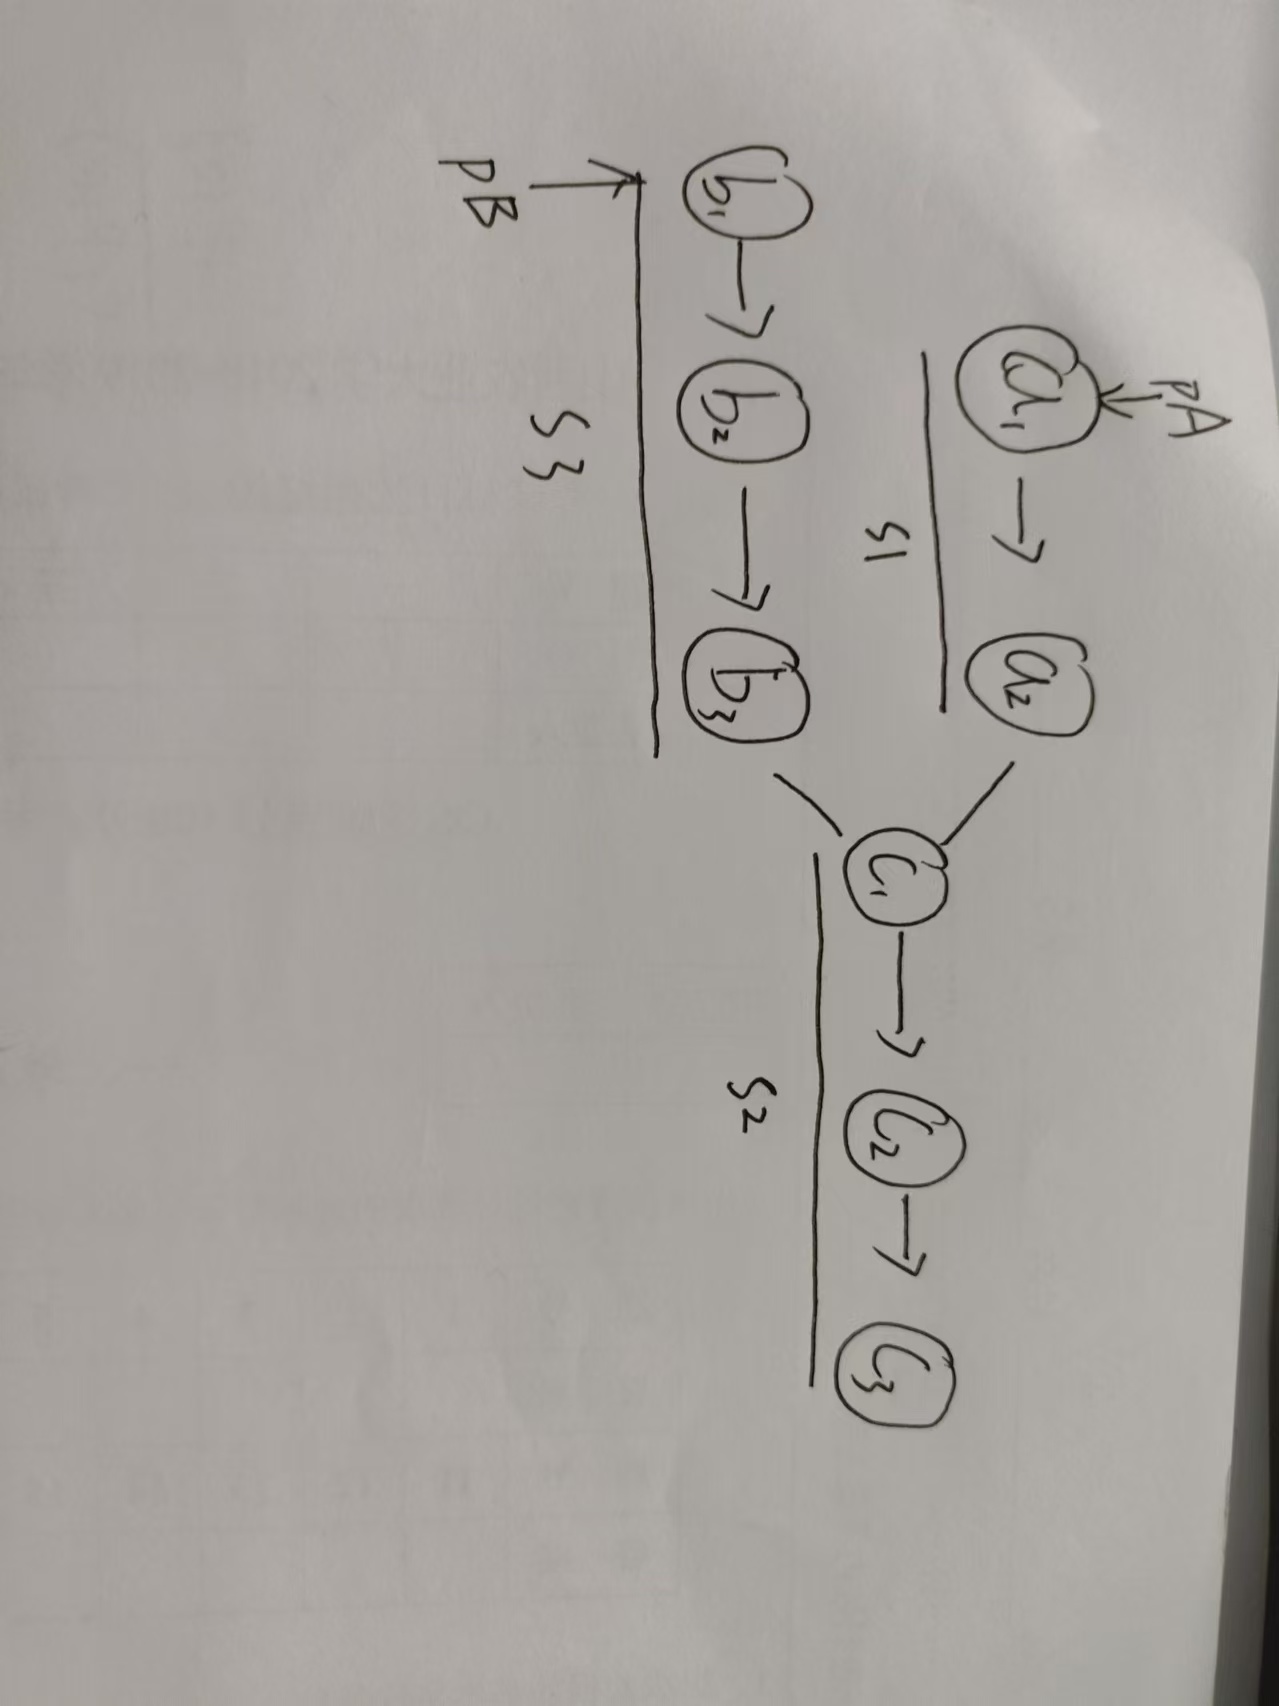 PA
a1 → a2
S1
c1 → c2 → c3
S2
b1 → b2 → b3
S3
PB